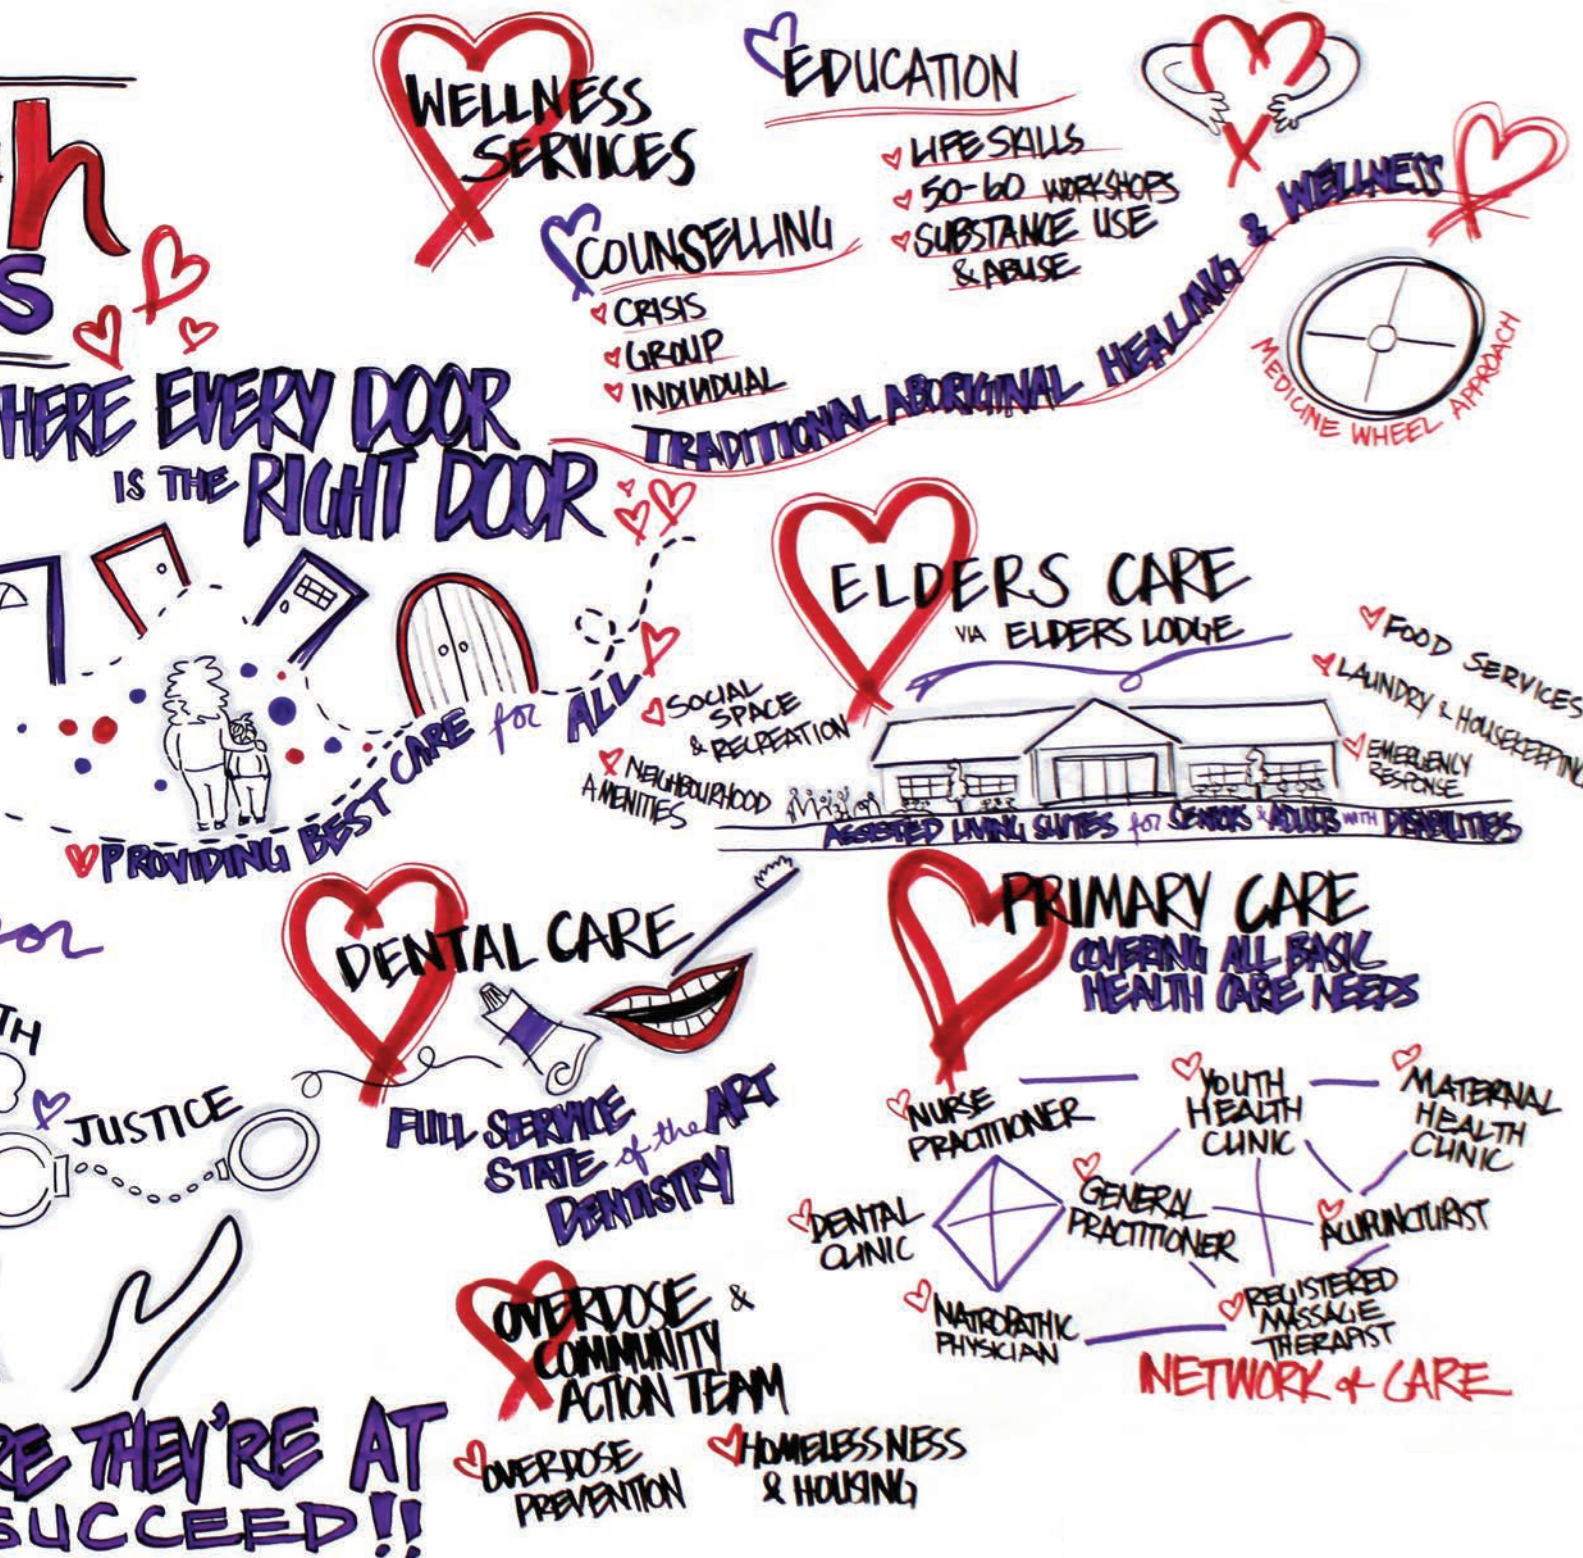 h
S
WELLNESS
SERVICES
EDUCATION
LIFE SKILLS
50-60 WORKSHOPS
SUBSTANCE USE
& ABUSE
COUNSELLING
CRISIS
GROUP
INDIVIDUAL
TRADITIONAL ABORIGINAL HEALING & WELLNESS
MEDICINE WHEEL APPROACH
HERE EVERY DOOR
IS THE RIGHT DOOR
PROVIDING BEST CARE for ALL
ELDERS CARE
VIA ELDERS LODGE
SOCIAL
SPACE
& RECREATION
NEIGHBOURHOOD
AMENITIES
FOOD SERVICES
LAUNDRY & HOUSEKEEPING
EMERGENCY
RESPONSE
ASSISTED LIVING SUITES for SENIORS & ADULTS WITH DISABILITIES
or
TH
JUSTICE
DENTAL CARE
FULL SERVICE
STATE of the ART
DENTISTRY
PRIMARY CARE
COVERING ALL BASIC
HEALTH CARE NEEDS
NURSE
PRACTITIONER
YOUTH
HEALTH
CLINIC
MATERNAL
HEALTH
CLINIC
DENTAL
CLINIC
GENERAL
PRACTITIONER
ACUPUNCTURIST
NATROPATHIC
PHYSICIAN
REGISTERED
MASSAGE
THERAPIST
NETWORK of CARE
OVERDOSE &
COMMUNITY
ACTION TEAM
OVERDOSE
PREVENTION
HOMELESSNESS
& HOUSING
RE THEY'RE AT
SUCCEED!!